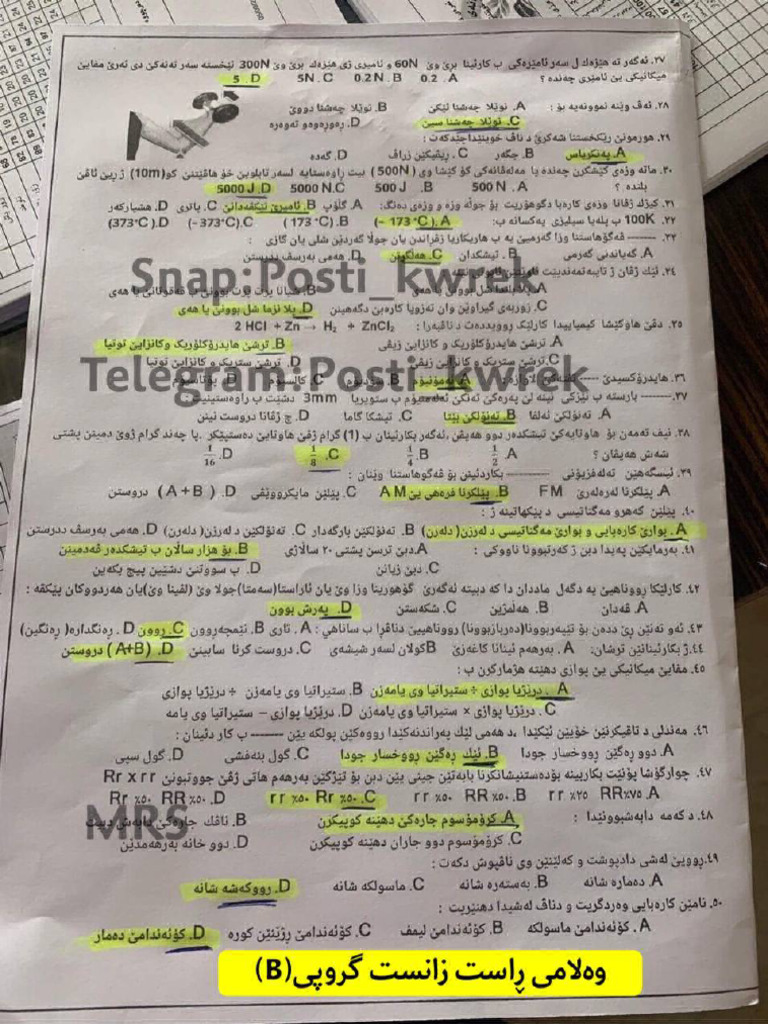 ٢٧. ئەگەر تە هێزەك ل سەر ئامێرەکی ب کارئینا بڕێ وێ 60N و ئامیری ژی هێزەك بڕێ وێ 300N ئێخستە سەر تەنەکێ دی ئەرێ مفایێ
میکانیکی یێ ئامێری چەندە ؟ A. 0.2 B. 0.2 N C. 5N D. 5
٢٨. ئەڤ وێنە نموونەیە بۆ : A. نوێلا چەشنا ئێکێ B. نوێلا چەشنا دووێ
C. نوێلا چەشنا سیێ D. ڕەورەوەو تەوەرە
٢٩. هورمونێ ڕێکخستنا شەکرێ د ناڤ خوینێداچێدکەت :
A. پەنکریاس B. جگەر C. ڕیڤیکێن زراڤ D. گەدە
٣٠. ماتە وزەی کێشکرن چەندە یا مەلەڤانەکی کۆ کێشا وی (500N) بیت ڕاوەستابیت لسەر تابلویێ خۆ هاڤێتنێ کو(10m) ژ ڕیێ ئاڤێ
بلندە ؟ A. 500 N B. 500 J C. 5000 N D. 5000 J
٣١. کیژك ژڤانا وزەی کارەبا دگوهۆریت بۆ جولە وزە و وزەی دەنگ: A. گلۆپ B. ئامیرێ تێکڤەدانێ C. پاتری D. هشیارکەر
٣٢. 100K ب پلەیا سیلیزی یەکسانە ب: A. (– 173 °C) B. (173 °C) C. (– 373°C) D. (373°C)
٣٣. -------- ڤەگۆهاستنا وزا گەرمیێ یە ب هاریکاریا زفڕاندن یان جوولا گەردێن شلی یان گازی :
A. گەیاندنی گەرمی B. تیشکدان C. هەلگرتن D. هەمی بەرسف بدرستن
Snap:Posti_kwrek
C. زوربەی گیراوێن وان ئەزویا کارەبێ دگەهینن D. پلا نزما شل بوونێ یا هەی
٣٥. دڤێ هاوکێشا کیمیاییدا کارلێك ڕوویددەت د ناڤبەرا : 2 HCl + Zn → H₂ + ZnCl₂
A. ترشێ هایدرۆکلۆریک و کانزایێ زیڤی B. ترشێ هایدرۆکلۆریک وکانزایێ توتیا
C. ترشێ ستریک و کانزایێ زیڤی D. ترشێ ستریک و کانزایێ توتیا
Telegram:Posti_kwrek
٣٨. نیف تەمەن بۆ هاوتایەکێ تیشکدەر دوو هەیڤن .ئەگەر بکارئینان ب (1) گرام ژڤێ هاوتایێ دەستپێکر .یا چەند گرام ژوێ دمینن پشتی
شەش هەیڤان ؟ A. 1/2 B. 1/4 C. 1/8 D. 1/16
٣٩. ئیسگەهێن تەلەفزیۆنی ---------- بکاردئینن بۆ ڤەگوهاستنا وێنان :
A. پێلکرنا لەرەلەرێ FM B. پێلکرنا فرەهی یێ AM C. پێلێن مایکروویڤی D. (A + B) دروستن
٤٠. پێلێن کەهرو مەگناتیسی د پێکهاتینە ژ :
A. بوارێ کارەبایی و بوارێ مەگناتیسی د لەرزن( دلەرن) B. تەنۆلکێن بارگەدار C. تەنۆلکێن د لەرزن( دلەرن) D. هەمی بەرسف ددرستن
٤١. بەرمایکێن پەیدا دبن ژ کەرتبوونا ناووکی : A. دبێ ترسن پشتی ٢٠ سالاژی B. بۆ هزار سالان ب تیشکدەر ڤەدمینن
C. دبێ زیانن D. ب سووتنێ دشێین پیچ بکەین
٤٢. کارلێکا ڕووناهیێ یە دگەل ماددان دا کە دبیتە ئەگەرێ گوهۆرینا وزا وێ یان ئاراستا(سەمتا)جولا وێ (لڤینا وێ)یان هەردووکان پێکڤە :
A. ڤەدان B. هەلمژین C. شکەستن D. پەرش بوون
٤٣. ئەو تەنێن ڕێ ددەن بۆ تێپەڕبوونا(دەربازبوونا) رووناهیێ دناڤڕا ب ساناهی : A. تاری B. نێمچەڕوون C. ڕوون D. ڕەنگدارە( ڕەنگین)
٤٤. ژ بکارئینانێن ترشان: A. بەرهەم ئینانا کاغەزێ B. کولان لسەر شیشەی C. دروست کرنا سابینێ D. (A+B) دروستن
٤٥. مفایێ میکانیکی یێ پوازی دهێتە هژمارکرن ب :
A. درێژیا پوازی ÷ ستیراتیا وی یامەزن B. ستیراتیا وی یامەزن ÷ درێژیا پوازی
C. درێژیا پوازی × ستیراتیا وی یامەزن D. درێژیا پوازی – ستیراتیا وی یامە
٤٦. مەندلی د تاقیکرنێن خۆیێن ئێکێدا .د هەمی لێك پەراندنەکێدا رووەکێن پولکە یێن -------- ب کار دئینان :
A. دوو ڕەگێن ڕووخسار جودا B. ئێك ڕەگێن ڕووخسار جودا C. گول بنەفشی D. گول سپی
٤٧. چوارگۆشا پۆنێت بکاربینە بۆدەستنیشانکرنا بابەتێن جینی یێن دبن بۆ تێژکێن بەرهەم هاتی ژڤێ جووتبوونێ Rr x rr
A. RR٪٧٥ rr ٪٢٥ B. RR ٪٥٠ rr ٪٥٠ C. Rr ٪٥٠ rr ٪٥٠ D. RR ٪٥٠ Rr ٪٥٠
MRS
٤٨. د کەمە دابەشبوونێدا : A. کرۆمۆسوم جارەکێ دهێنە کوپیکرن B. ناڤك جارەکێ دابەش دبیت
C. کرۆمۆسوم دوو جاران دهێنە کوپیکرن D. دوو خانە بەرهەمدێن
٤٩. ڕوویێ لەشی دادپوشت و کەلێنێن وی ناڤپوش دکەت :
A. دەمارە شانە B. بەستەرە شانە C. ماسولکە شانە D. رووکەشە شانە
٥٠. نامێن کارەبایی وەردگریت و دناڤ لەشیدا دهنێریت :
A. کۆئەندامێ ماسولکە B. کۆئەندامێ لیمف C. کۆئەندامێ ڕژێنێن کورە D. کۆئەندامێ دەمار
وەلامی ڕاست زانست گروپی(B)